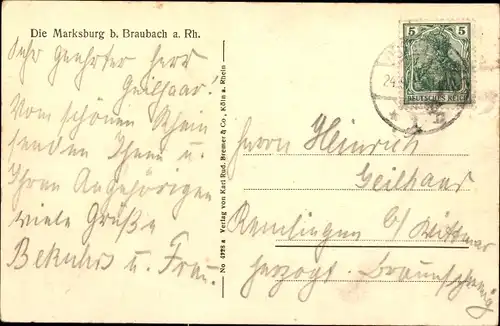 Die Marksburg b. Braubach a. Rh.
Sehr geehrter Herr
Geilhaar!
Vom schönen Rhein
senden Ihnen u.
Ihren Angehörigen
viele Grüße
u. Frau.
No 4228 a Verlag von Karl Rud. Bremer & Co, Köln a. Rhein
5 5
DEUTSCHES REICH
Herrn Heinrich
Geilhaar
Remlingen b/ Wittmar
Herzogt. Braunschweig